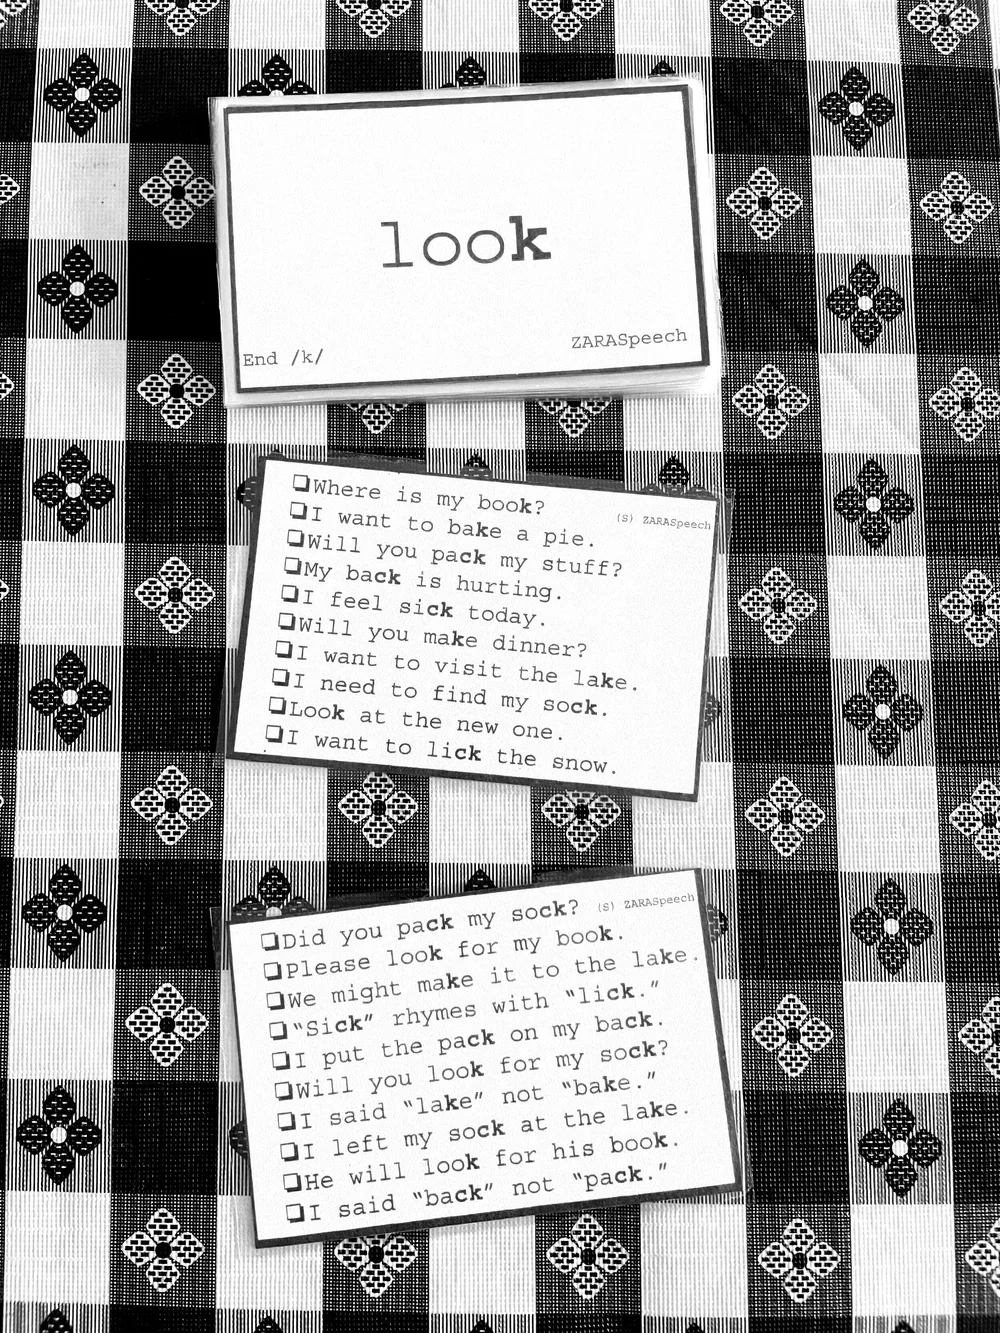 look
End /k/
ZARASpeech
❑Where is my book?
(S) ZARASpeech
❑I want to bake a pie.
❑Will you pack my stuff?
❑My back is hurting.
❑I feel sick today.
❑Will you make dinner?
❑I want to visit the lake.
❑I need to find my sock.
❑Look at the new one.
❑I want to lick the snow.
❑Did you pack my sock?
(S) ZARASpeech
❑Please look for my book.
❑We might make it to the lake.
❑“Sick” rhymes with “lick.”
❑I put the pack on my back.
❑Will you look for my sock?
❑I said “lake” not “bake.”
❑I left my sock at the lake.
❑He will look for his book.
❑I said “back” not “pack.”